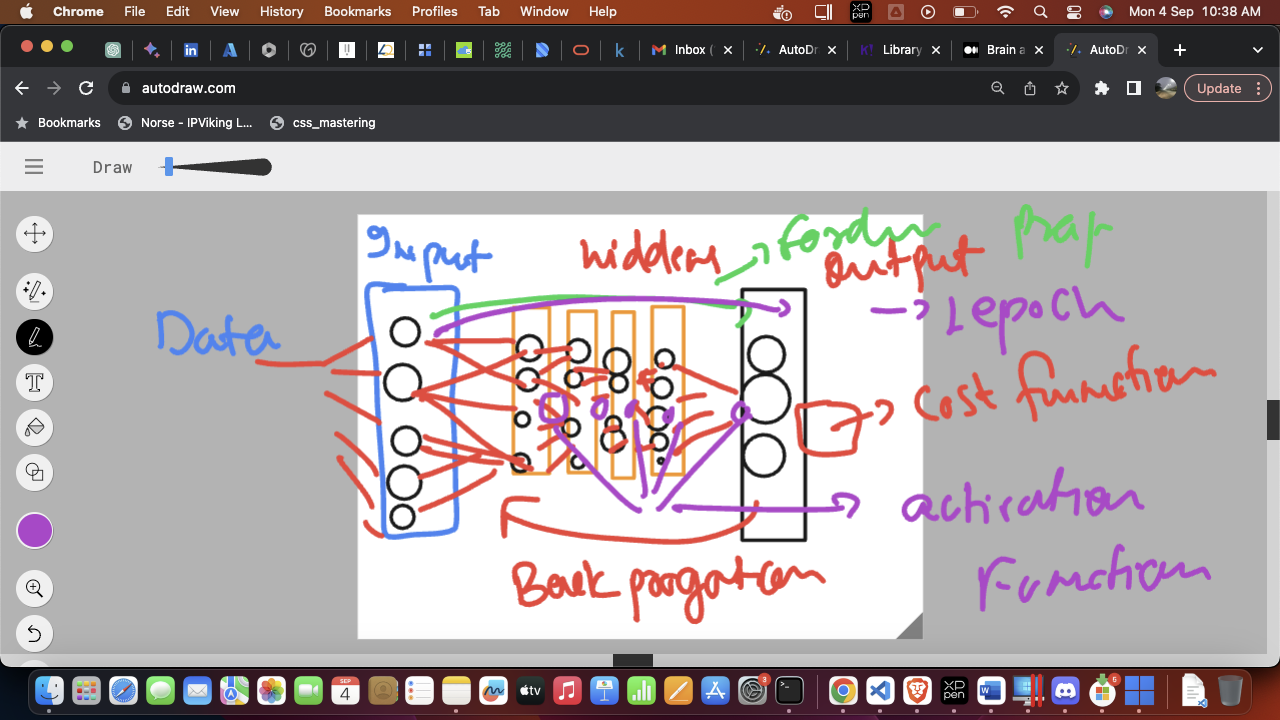 Chrome File Edit View History Bookmarks Profiles Tab Window Help Mon 4 Sep 10:38 AM
Inbox ( AutoDr Library Brain a AutoDr
autodraw.com Update
Bookmarks Norse - IPViking L... css_mastering
Draw
Input hidden output
prap
Data
1epoch
cost function
activation
Function
Back